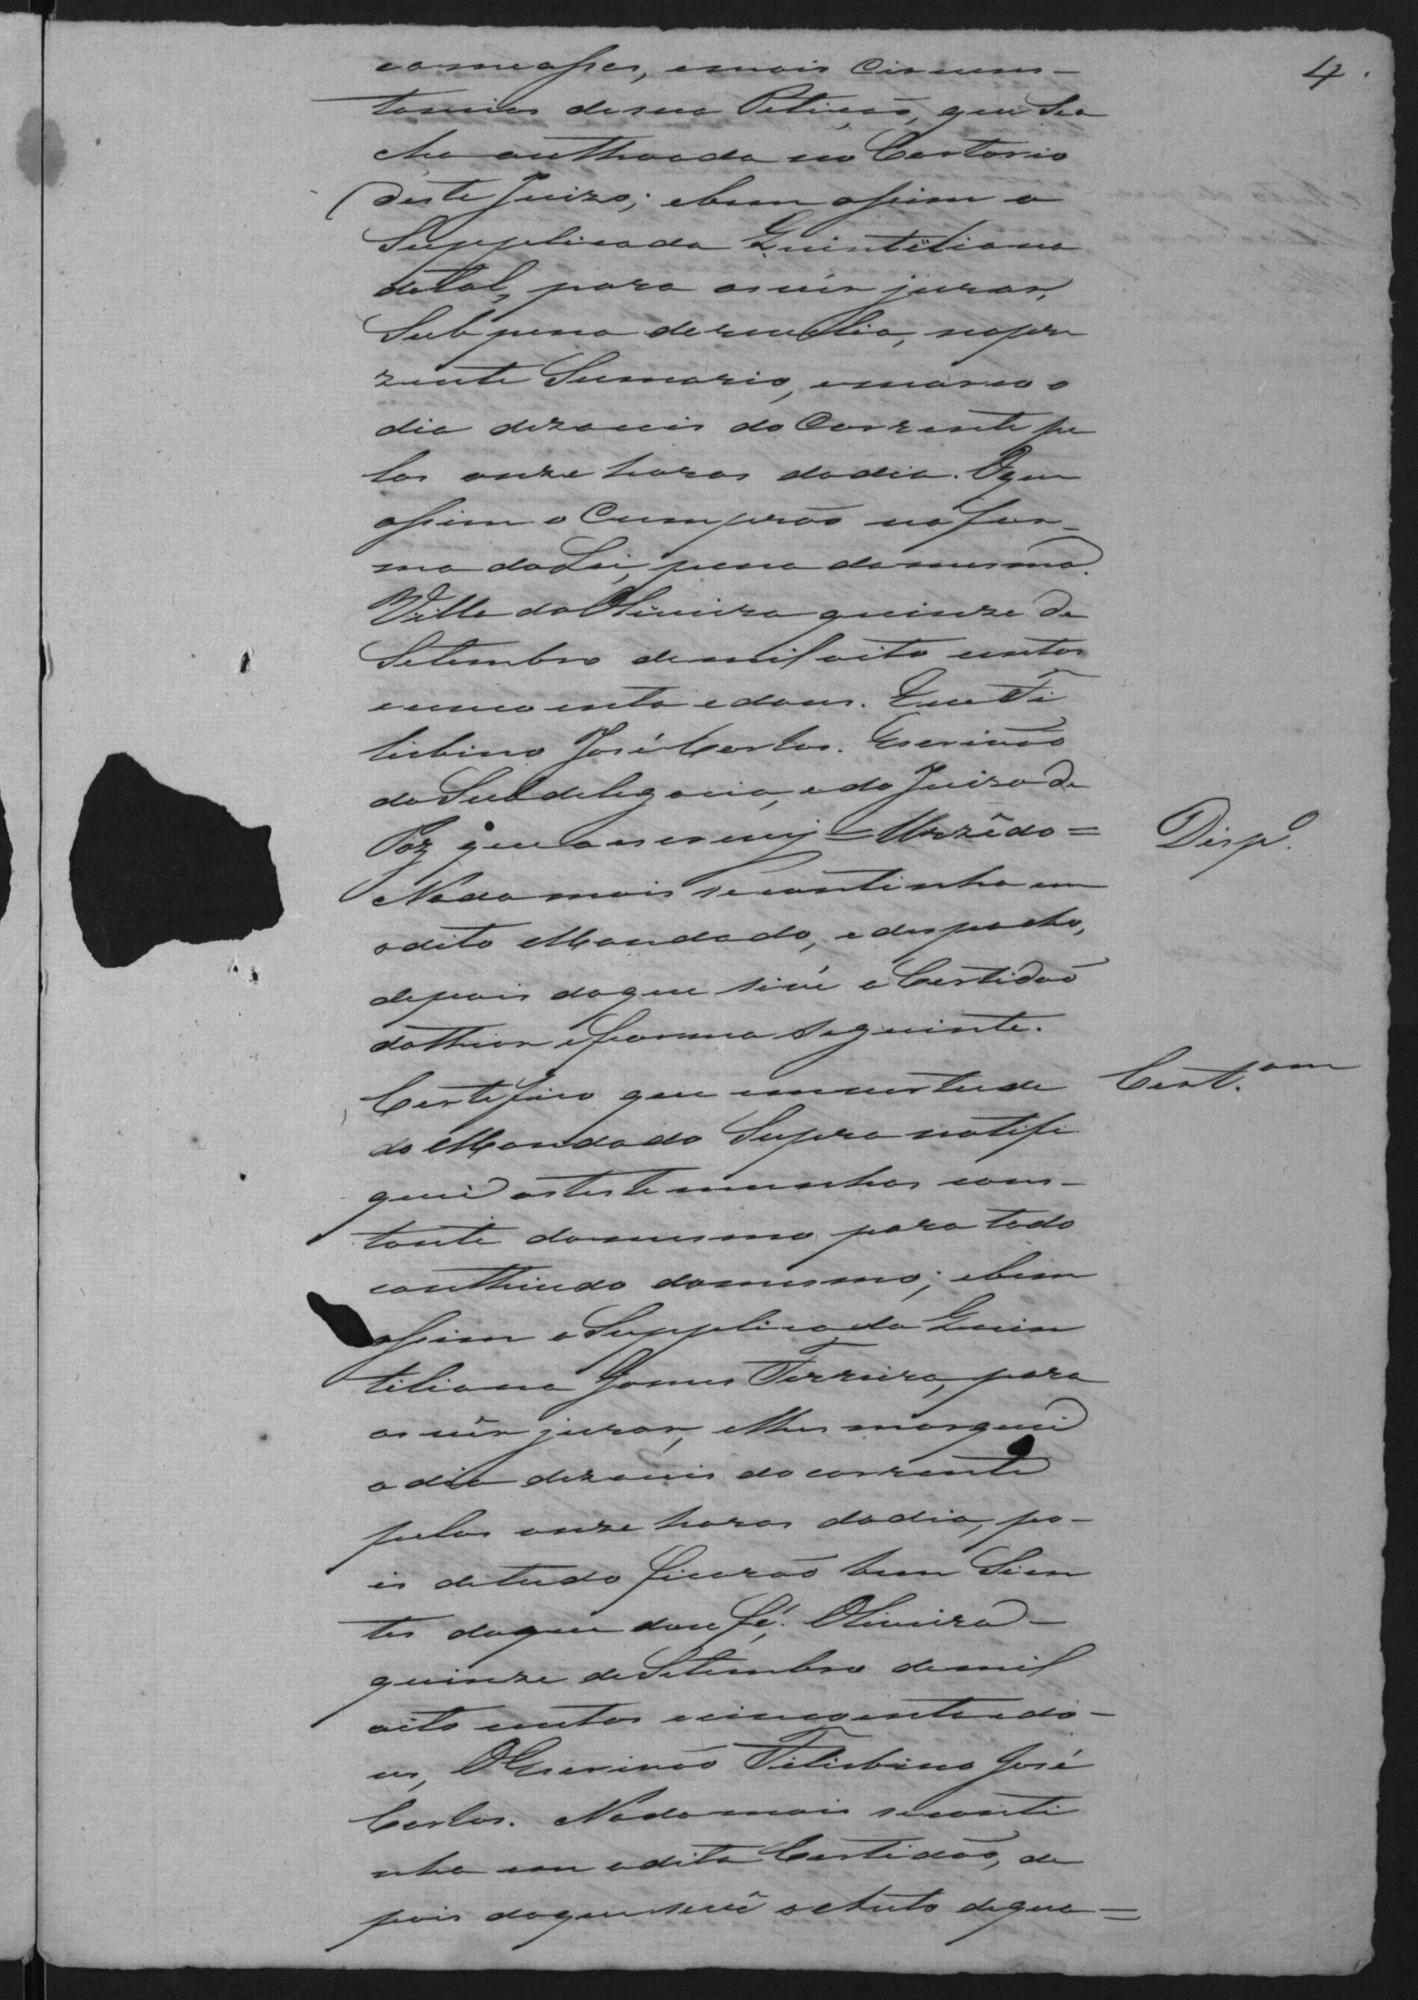 4
com ameaças, e mais circuns-
tancias de sua Petição, que Sea
cha authoada no Cartorio
deste Juizo; ebem assim a
Supplicada Quintiliana
detal, para as vêr jurar,
Sub pena derevelia, nopre
zente Sumario, emarco o
dia dezaceis do Corrente pe
las onze horas dodia. Oque
assim o Cumprão na for-
ma da Lei, pena damesma.
Villa da Oliveira quinze de
Setembro demil oito centos
cincoenta e dous. Eu Fi
lisbino José Carlos. Escrivão
da Subdelegacia, e do Juizo de
Paz que o escrevij = Azzêdo =
Disp.º
Nada mais secontinha em
odito Mandado, e despacho,
depois doque sevê a Certidão
dotheor e forma seguinte.
Certifico que emvertude
Cert.am
do Mandado Supra notifi
quei astestemunhas cons-
tante domesmo para todo
contheudo domesmo; ebem
assim a Supplicada Quin
tiliana Gomes Ferreira, para
as vêr jurar, elhes marquei
o dia dezaceis do corrente
pelas onze horas dodia, po-
is detudo ficarão bem Sien
tes doque dou fé. Oliveira
quinze de Setembro demil
oito centos e cincoenta e do-
us, O Escrivão Filisbino José
Carlos. Nada mais seconti
nha em adita Certidão, de
pois doque sevê o Auto de qua=